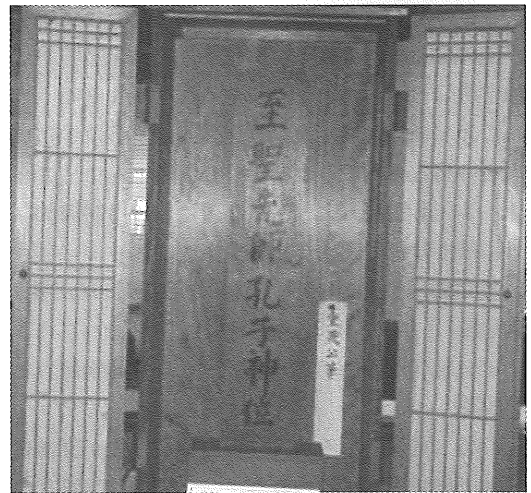 至聖先師孔子神位